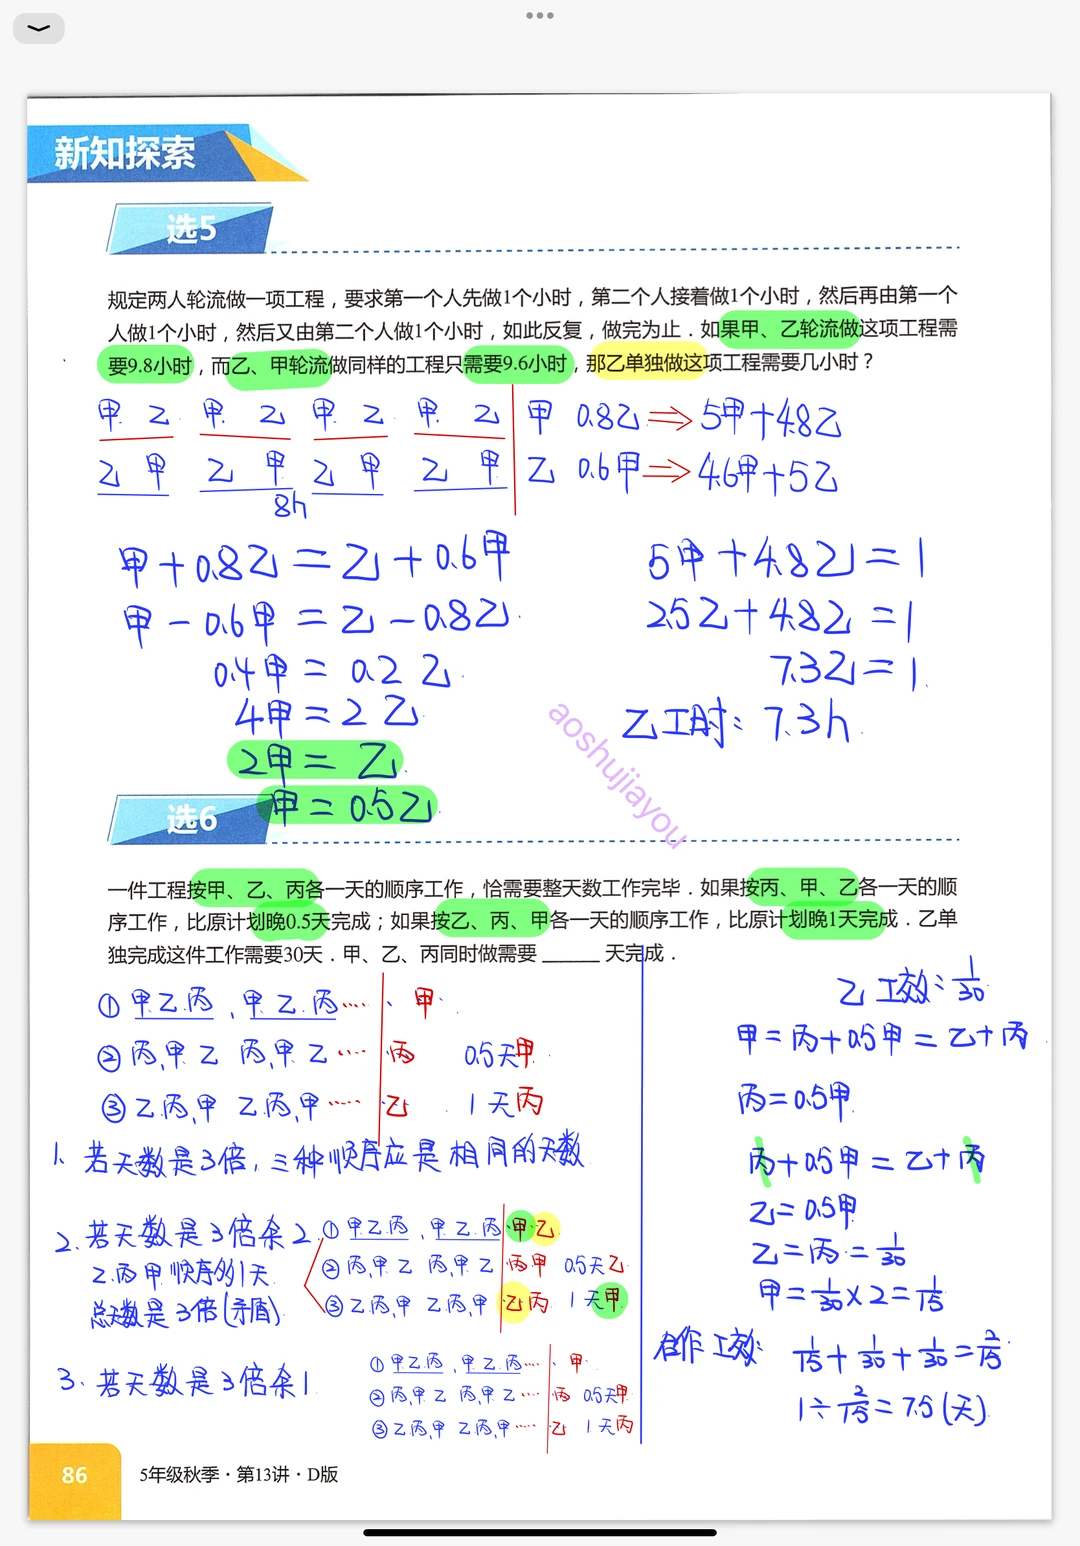 新知探索
选5
规定两人轮流做一项工程，要求第一个人先做1个小时，第二个人接着做1个小时，然后再由第一个
人做1个小时，然后又由第二个人做1个小时，如此反复，做完为止．如果甲、乙轮流做这项工程需
要9.8小时，而乙、甲轮流做同样的工程只需要9.6小时，那乙单独做这项工程需要几小时？
甲 乙 甲 乙 甲 乙 甲 乙 甲 0.8乙⇒5甲+4.8乙
乙 甲 乙 甲 乙 甲 乙 甲 乙 0.6甲⇒4.6甲+5乙
8h
甲+0.8乙=乙+0.6甲
甲-0.6甲=乙-0.8乙
0.4甲=0.2乙
4甲=2乙
2甲=乙
甲=0.5乙
5甲+4.8乙=1
2.5乙+4.8乙=1
7.3乙=1
乙工时：7.3h
aoshujiayou
选6
一件工程按甲、乙、丙各一天的顺序工作，恰需要整天数工作完毕．如果按丙、甲、乙各一天的顺
序工作，比原计划晚0.5天完成；如果按乙、丙、甲各一天的顺序工作，比原计划晚1天完成．乙单
独完成这件工作需要30天．甲、乙、丙同时做需要 ______ 天完成．
①甲.乙.丙、甲.乙.丙…… 甲
②丙,甲.乙 丙,甲.乙…… 丙 0.5天甲
③乙.丙,甲 乙.丙,甲…… 乙 1天丙
1、若天数是3倍，三种顺序应是相同的天数
2、若天数是3倍余2
乙.丙.甲顺序多1天
总天数是3倍(矛盾)
①甲.乙.丙、甲.乙.丙 甲.乙
②丙,甲.乙 丙,甲.乙 丙甲 0.5天乙
③乙.丙,甲 乙.丙,甲 乙丙 1天甲
3、若天数是3倍余1
①甲.乙.丙、甲.乙.丙…… 甲
②丙,甲.乙 丙,甲.乙…… 丙 0.5天甲
③乙.丙,甲 乙.丙,甲…… 乙 1天丙
乙工效：1/30
甲=丙+0.5甲=乙+丙
丙=0.5甲
丙+0.5甲=乙+丙
乙=0.5甲
乙=丙=1/30
甲=1/30×2=1/15
合作工效：1/15+1/30+1/30=2/15
1÷2/15=7.5(天)
86
5年级秋季·第13讲·D版